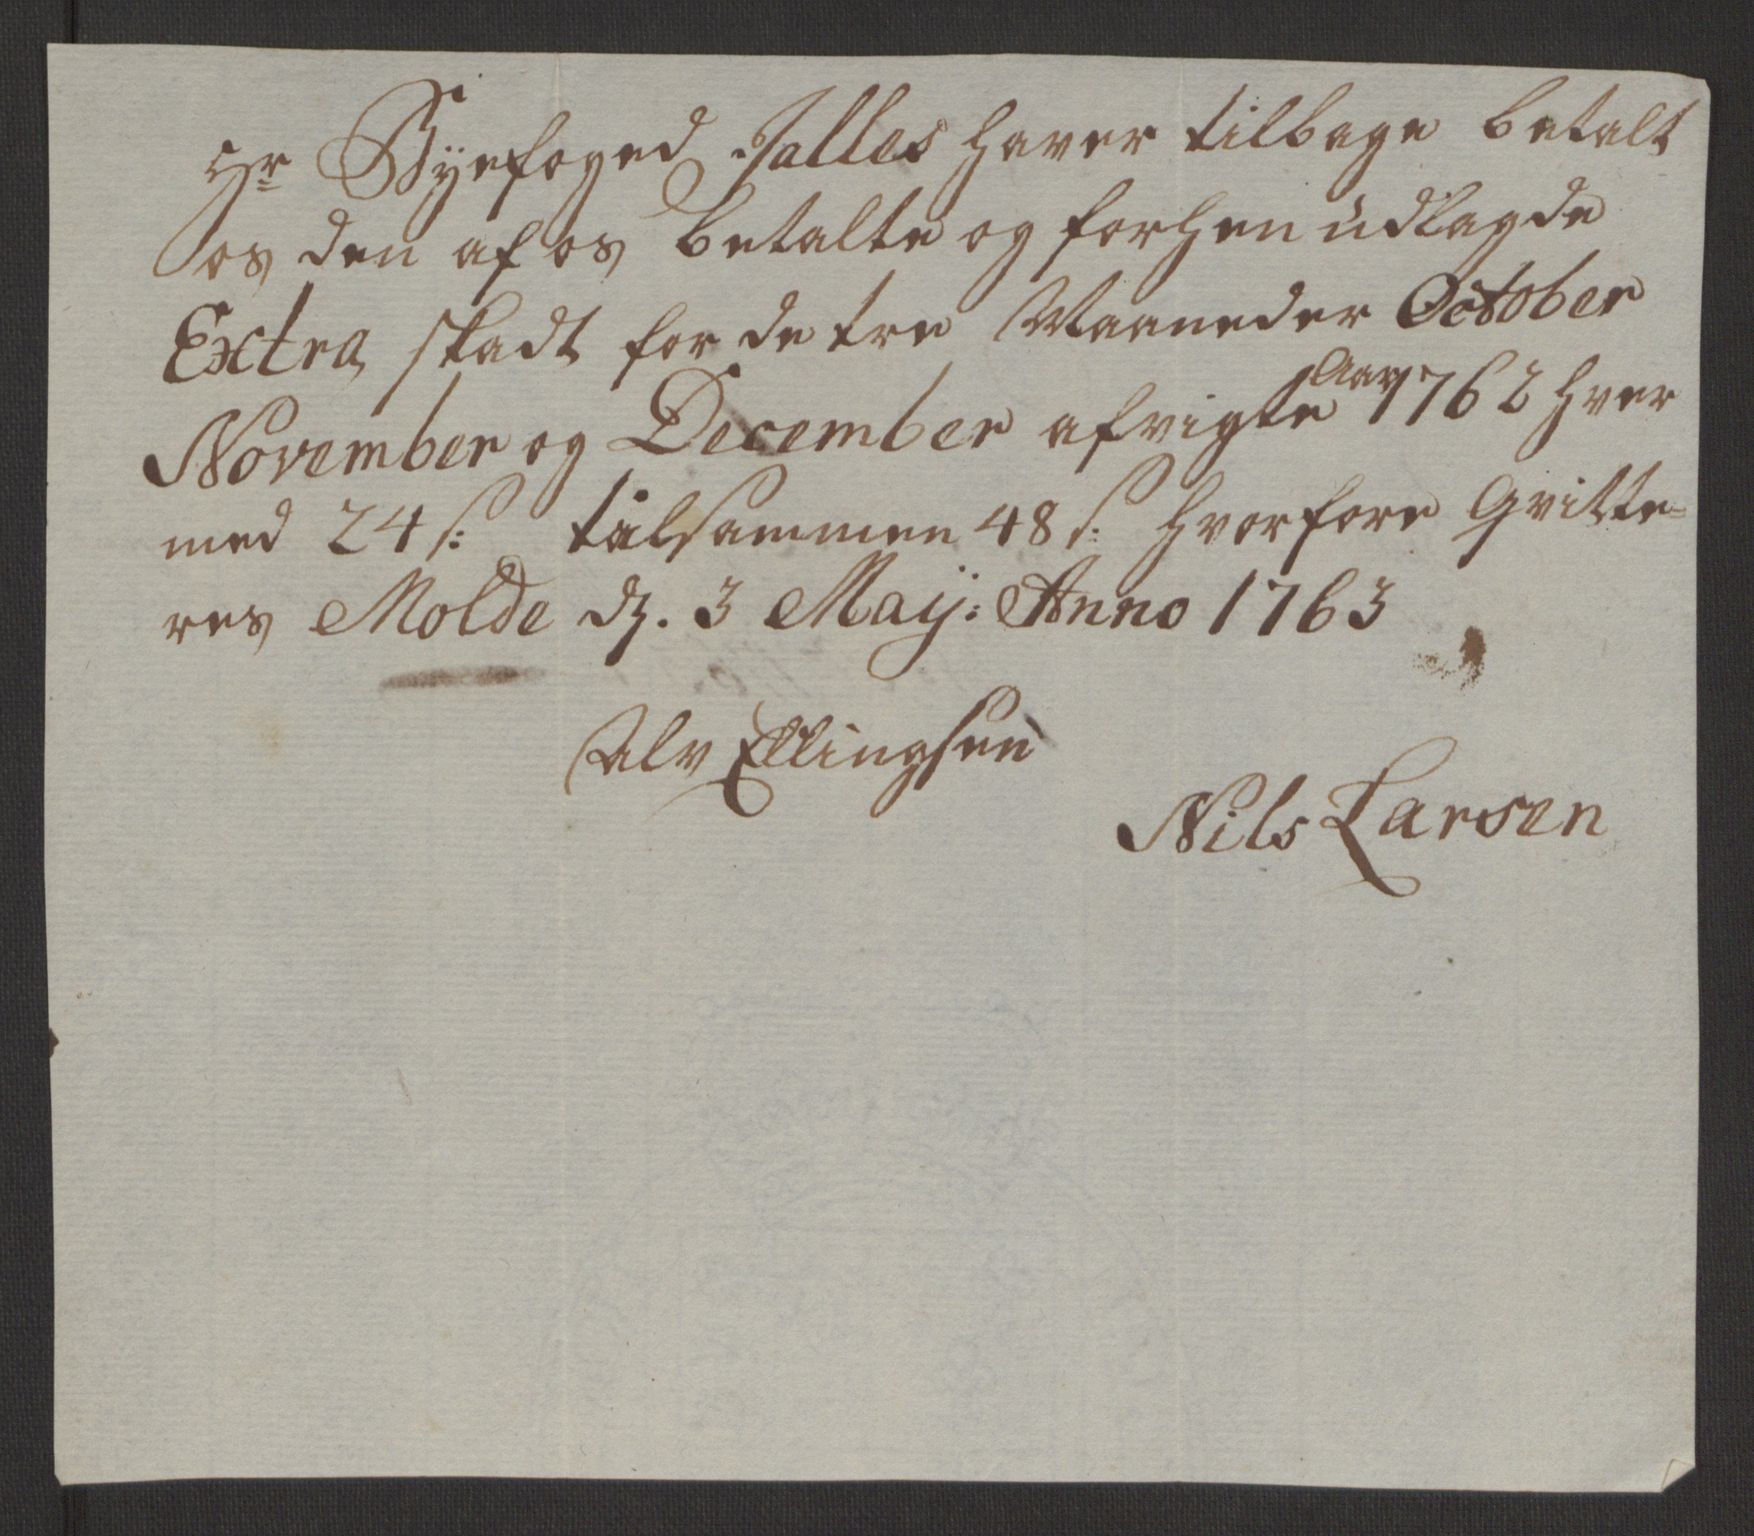 Hr Byefoged Jalles haver tilbage betalt
os den af os betalte og forhen udlagde
Extra skadt for de tre Maaneder October
November og December afvigte Aar 1762 hver
med 24 s: tilsammen 48 s: hvorfore Qvitte=
res Molde d. 3 Maij: Anno 1763
Ulv Ellingsen
Nils Larsen